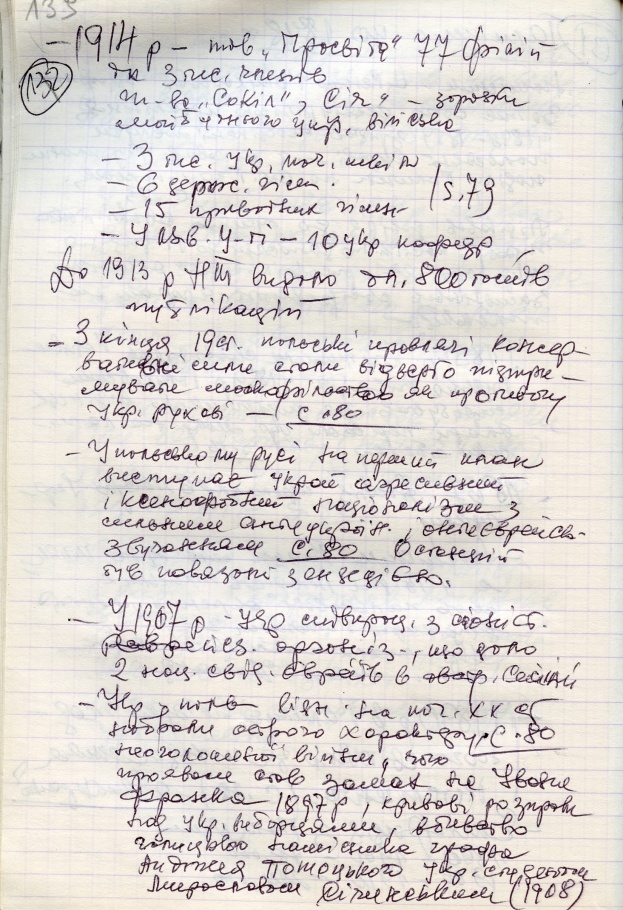 135
132
– 1914 р – тов „Просвіта" 77 філій
та 3 тис. членів
т-ва „Сокіл", „Січ" – зародки
укр. війська
– 3 тис. укр. поч. шкіл
– 6 держ. гімн.
– 15 приватних гімн. /s. 79
– У Львів. У-ті – 10 укр кафедр
До 1913 р НТШ видало 800 томів
публікацій
– З кінця 19 ст. польські правлячі консер-
вативні сили стали відверто підтри-
мувати москвофільство як противагу
укр. рухові – с. 80
– У польському русі на перший план
виступає украй агресивний
і ксенофобний націоналізм з
сильним антиукраїн. і антиєврейськ.
звучанням с. 80 Останній
був повязаний з ендецією.
– У 1907 р – укр співпрац. з сіоніст.
єврейськ. організ., що дало
2 нац. свід. євреїв в австр. Сеймі
– Укр – поль відн. на поч. ХХ ст
набрали острого характеру с. 80
неоголошеної війни, чого
проявом став замах на Івана
Франка 1897 р, криваві розправи
над укр. виборцями, вбивство
галицького намісника графа
Анджея Потоцького укр. студентом
Мирославом Січинським (1908)